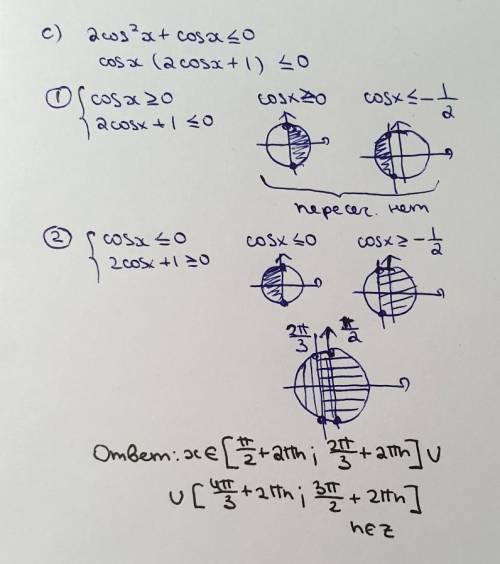 c) 2cos²x + cosx ≤ 0
cosx (2cosx + 1) ≤ 0
① { cosx ≥ 0
2cosx + 1 ≤ 0
cosx ≥ 0
cosx ≤ -1/2
пересеч. нет
② { cosx ≤ 0
2cosx + 1 ≥ 0
cosx ≤ 0
cosx ≥ -1/2
2π/3
π/2
Ответ: x ∈ [π/2 + 2πn ; 2π/3 + 2πn] ∪
∪ [4π/3 + 2πn ; 3π/2 + 2πn]
n ∈ z